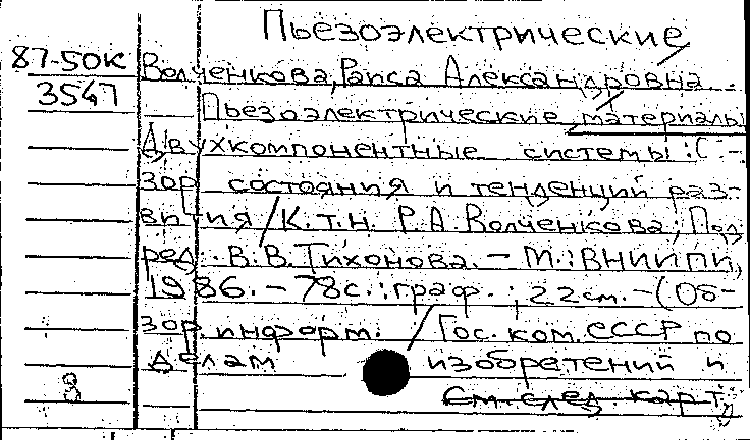 Пьезоэлектрические
87-50К
3547
Волченкова, Раиса Александровна.
Пьезоэлектрические материалы
Двухкомпонентные системы: О-
зор состояния и тенденций раз-
вития / К.т.н. Р.А. Волченкова; Под
ред. В.В. Тихонова. – М.: ВНИИПИ,
1986. – 78с.: граф.; 22см. – (Об-
зор. информ. / Гос. ком. СССР по
делам изобретений и
См. след. карт.